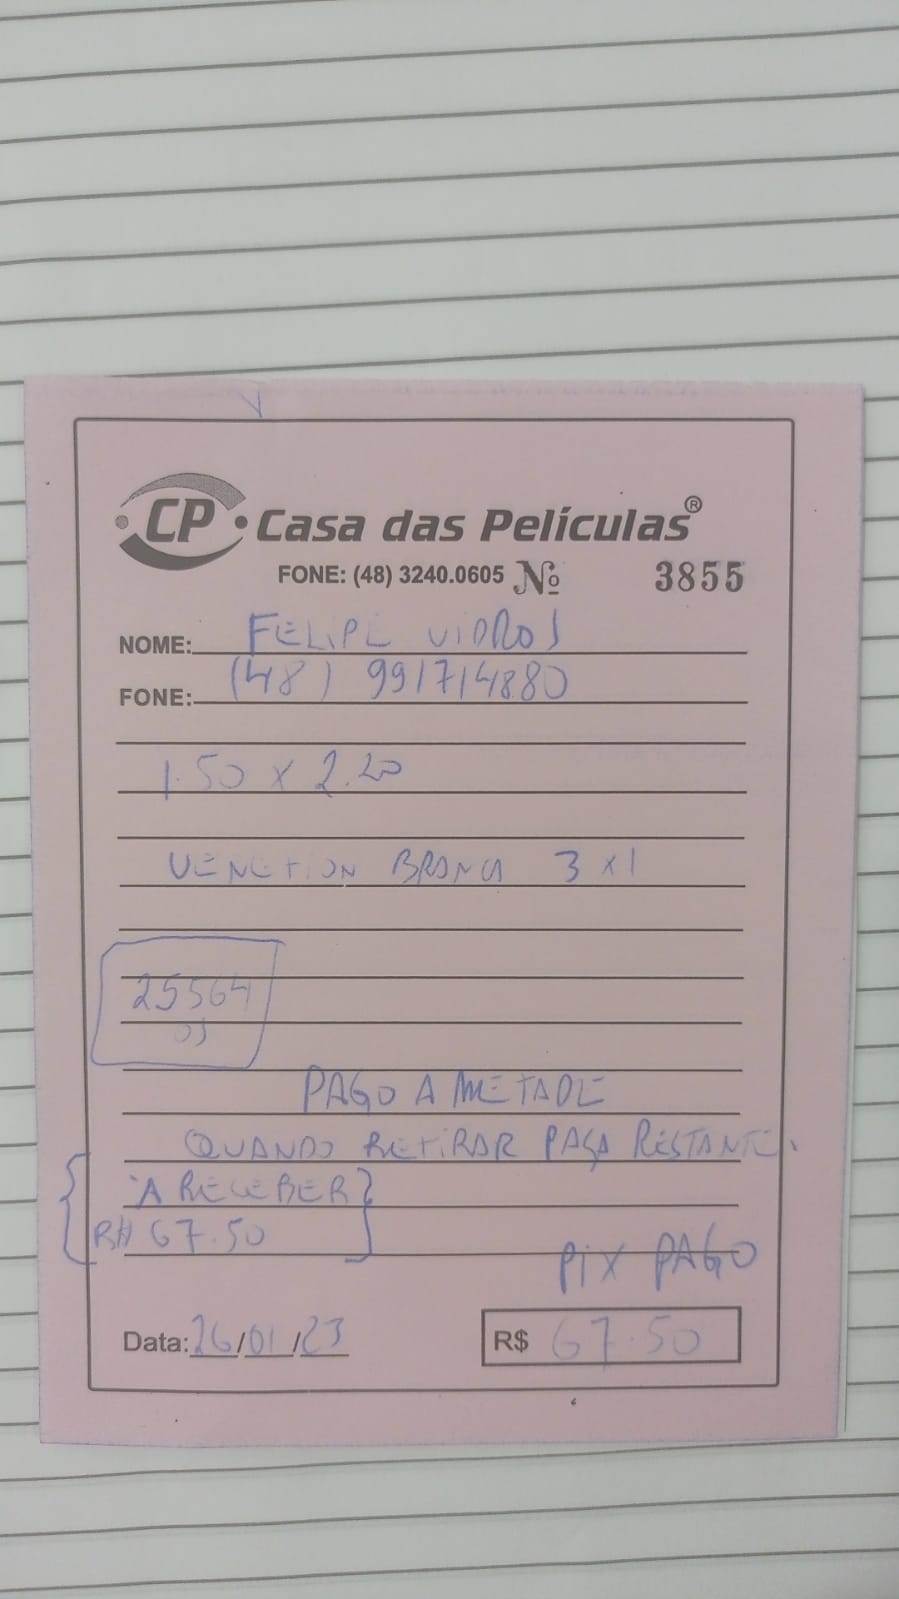 CP Casa das Películas®
FONE: (48) 3240.0605 Nº 3855
NOME: FELIPE VIDROS
FONE: (48) 991714880
1.50 x 2.20
VENETION BRANCA 3 x 1
25564
OS
PAGO A METADE
QUANDO RETIRAR PAGA RESTANTE.
A RECEBER
R$ 67.50
PIX PAGO
Data: 26/01/23 R$ 67.50